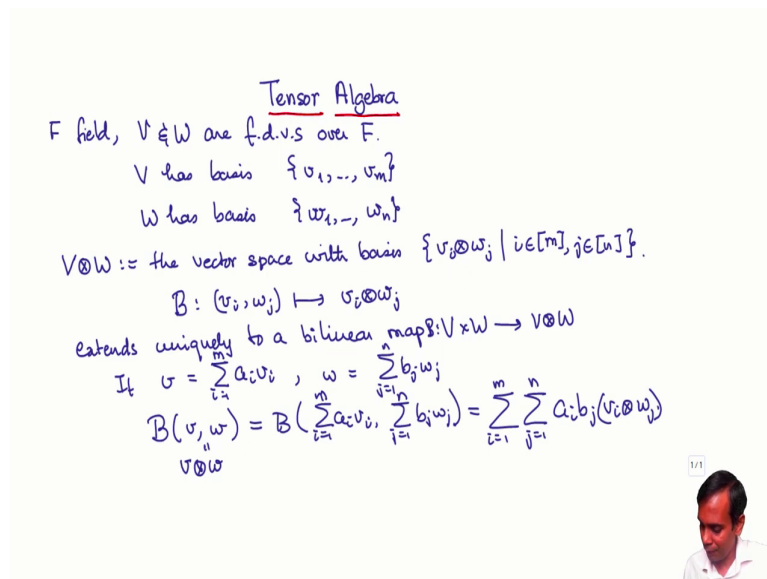 Tensor Algebra
F field, V & W are f.d.v.s over F.
V has basis {v₁,..., vₘ}
W has basis {w₁,..., wₙ}
V⊗W := the vector space with basis {vᵢ⊗wⱼ | i∈[m], j∈[n]}.
B : (vᵢ, wⱼ) ↦ vᵢ⊗wⱼ
extends uniquely to a bilinear map B: V×W → V⊗W
If v = ∑_{i=1}^{m} aᵢvᵢ , w = ∑_{j=1}^{n} bⱼwⱼ
B(v, w) = B(∑_{i=1}^{m} aᵢvᵢ, ∑_{j=1}^{n} bⱼwⱼ) = ∑_{i=1}^{m} ∑_{j=1}^{n} aᵢbⱼ(vᵢ⊗wⱼ)
"
v⊗w
1/1